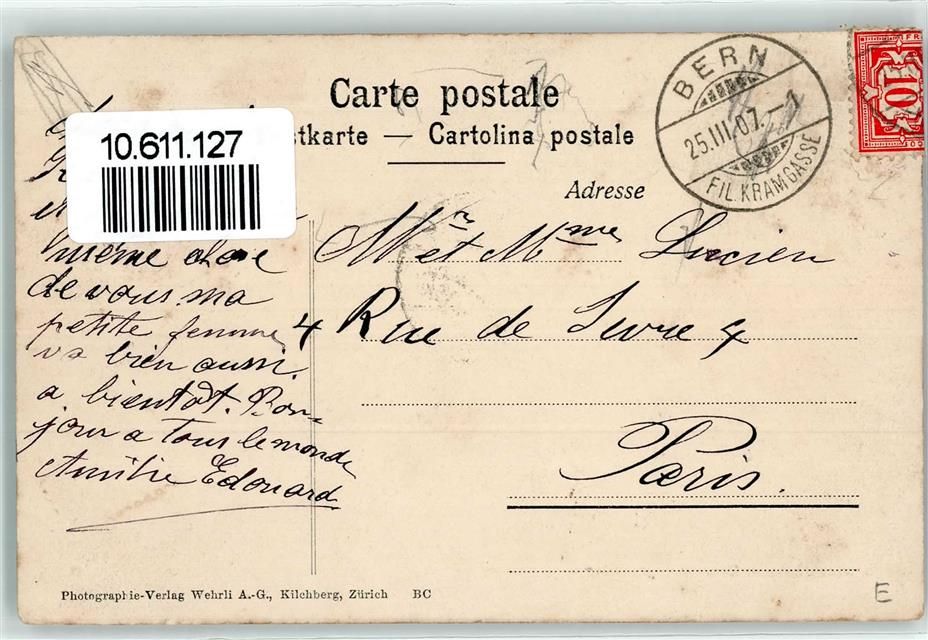 Carte postale
stkarte — Cartolina postale
Adresse
10.611.127
BERN
25.III.07.–1
FIL. KRAMGASSE
FR
10
même chose
de vous. ma
petite femme
va bien aussi.
a bientôt. Bon-
jour a Tous le monde
Edouard
Mr et Mme Lucien
4 Rue de
Paris.
Photographie-Verlag Wehrli A.-G., Kilchberg, Zürich BC
E